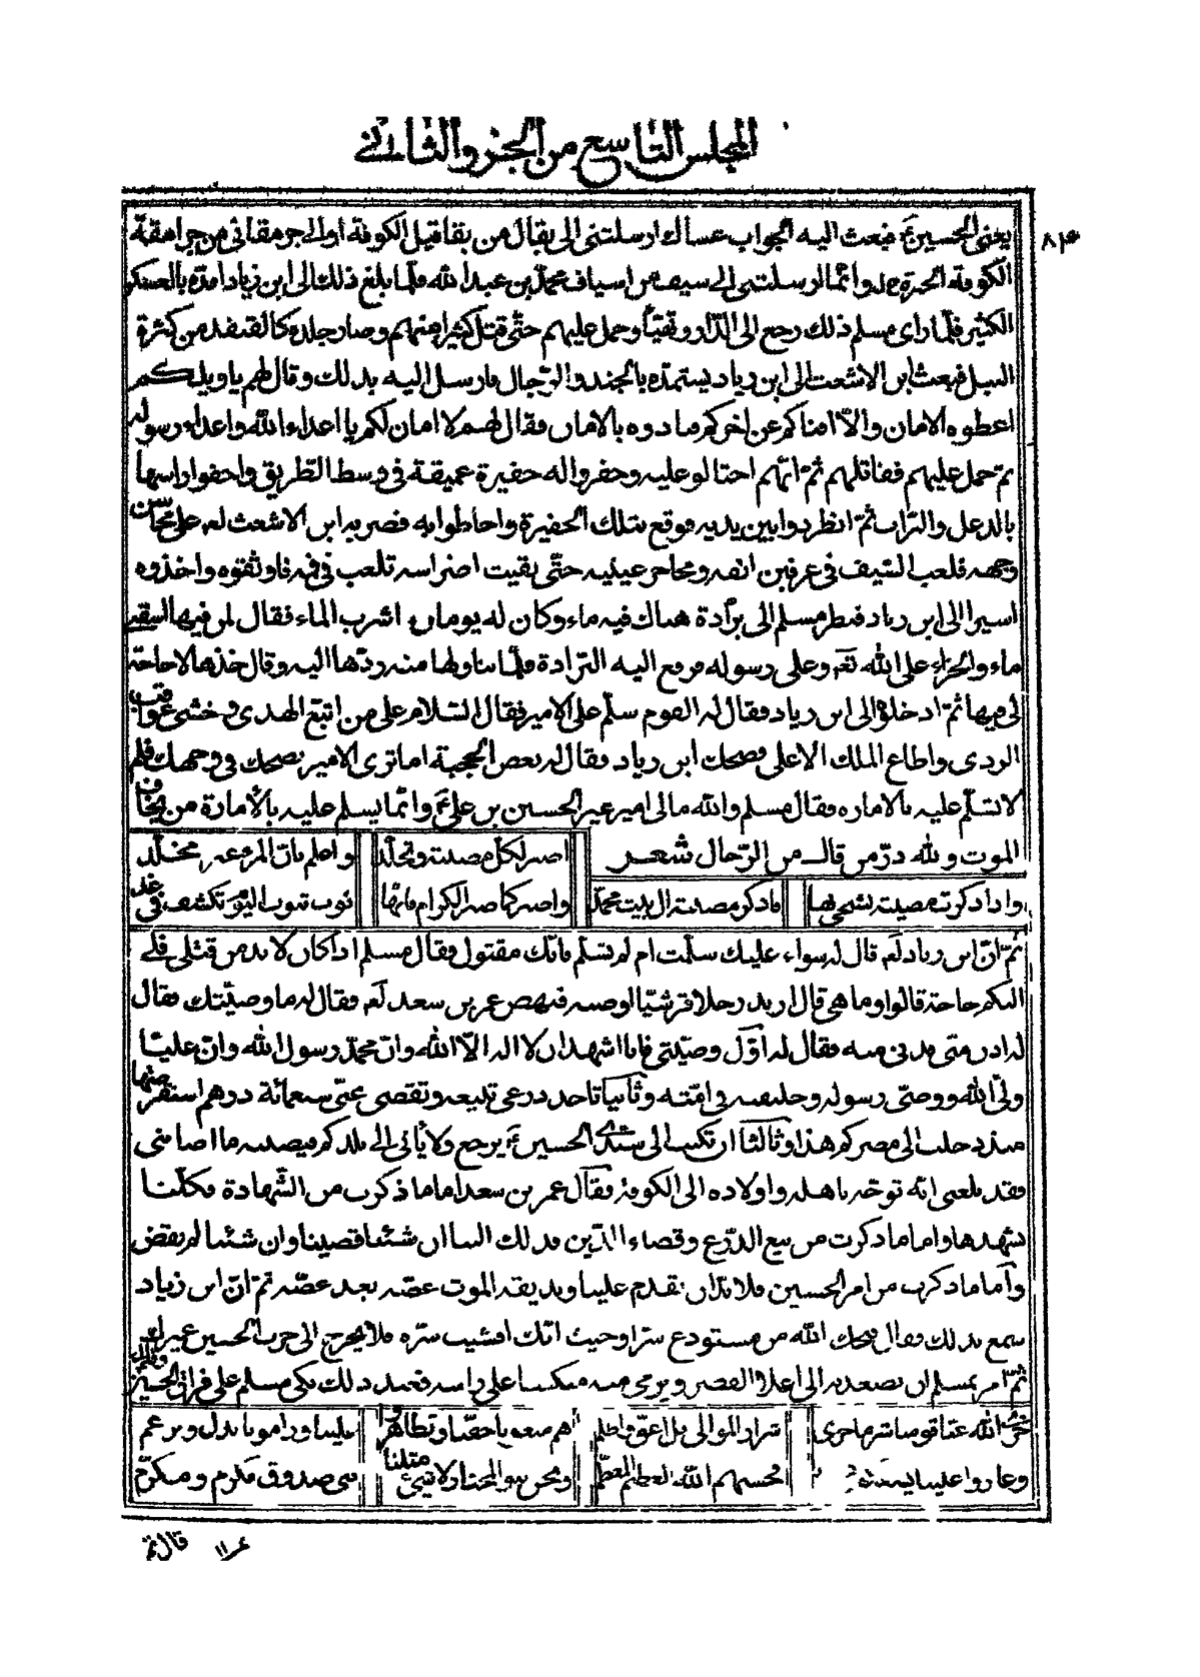 المجلس التاسع من الجزء الثاني
٨٣
يعني الحسين ع فبعث اليه الجواب عساك ارسلتني الى بقال من بقاقيل الكوفة أوالى جرمقاني من جرامقة
الكوفة الحيرة وانما ارسلتني الى سيف من اسياف محمد بن عبد الله فلما بلغ ذلك الى ابن زياد امده بالعسكر
الكثير فلما راى مسلم ذلك رجع الى الدار وتهيأ وحمل عليهم حتى قتل كثيرا منهم وصار جلده كالقنفذ من كثرة
النبل فبعث ابن الاشعث الى ابن زياد يستمده بالجند والرجال فارسل اليه بذلك وقال لهم يا ويلكم
اعطوه الامان والا افناكم عن اخركم فنادوه بالامان فقال لهم لا امان لكم يا اعداء الله واعداء رسوله
ثم حمل عليهم فقاتلهم ثم انهم احتالو عليه وحفروا له حفيرة عميقة في وسط الطريق واخفوا راسها
بالدغل والتراب ثم انطردوا بين يديه فوقع بتلك الحفيرة واحاطوا به فضربه ابن الاشعث لع على محاسن
وجهه فلعب السيف في عرنين انفه ومحاجر عينيه حتى بقيت اضراسه تلعب في فمه فاوثقوه واخذوه
اسيرا الى ابن زياد فنظر مسلم الى برادة هناك فيه ماء وكان له يومان ما شرب الماء فقال لمن فيها اسقني
ماء والجزاء على الله تع وعلى رسوله فرفع اليه البرادة فلما تناولها منه ردها اليه وقال خذها لا حاجة
لي فيها ثم ادخلوه الى ابن زياد فقال له القوم سلم على الامير فقال السلام على من اتبع الهدى وخشى عواقب
الردى واطاع الملك الاعلى فضحك ابن زياد فقال له بعض الحجبة اما ترى الامير يضحك في وجهك فلم
لا تسلم عليه بالاماره فقال مسلم والله مالي امير غير الحسين بن علي ع وانما يسلم عليه بالامارة من يخاف
الموت ولله در من قال من الرجال شعر
اصبر لكل مصيبة وتجلد
واعلم بان المرء غير مخلد
واذا ذكرت مصيبة تشجى بها
فاذكر مصيبة ال بيت محمد
واصبر كما صبر الكرام فانها
نوب تنوب اليوم تكشف في غد
ثم ان ابن زياد لع قال له سواء عليك سلمت ام لم تسلم فانك مقتول فقال مسلم اذا كان لا بد من قتلي فلي
اليكم حاجة قالوا وما هي قال اريد رجلا قرشيا اوصيه فنهض عمر بن سعد لع فقال له ما وصيتك فقال
له ادن مني فدنى منه فقال له اول وصيتي فانا اشهد ان لا اله الا الله وان محمد رسول الله وان عليا
ولي الله ووصي رسوله وخليفته في امته وثانيا تاخذ درعي تبيعه وتقضي عني سبعمائة درهم استقرضتها
منذ دخلت الى مصركم هذا وثالثا ان تكتب الى سيدي الحسين ع يرجع ولا يأتي الى بلدكم فيصيبه ما اصابني
فقد بلغني انه توجه باهله واولاده الى الكوفة فقال عمر بن سعد اما ما ذكرت من الشهادة فكلنا
نشهدها واما ما ذكرت من بيع الدرع وقضاء الدين فذلك الينا ان شئنا قضينا وان شئنا لم نقض
وأما ما ذكرت من امر الحسين فلا بد ان يقدم علينا ونذيقه الموت غصه بعد غصه ثم ان ابن زياد
سمع بذلك فقال قبحك الله من مستودع سرا وحيث انك افشيت سره فلا يخرج الى حرب الحسين غيرك
ثم امر بمسلم ان يصعد به الى اعلا القصر ويرمى منه منكسا على راسه فعند ذلك بكى مسلم على فراق الحسين وقال
جزى الله عنا قومنا شر ما جرى
شرار الموالي بل اعق واظلم
هم منعونا حقنا وتظاهروا
علينا وراموا نذل ونرغم
وغاروا علينا يسفكون
فحسبهم الله العظيم المعظم
ونحن بنو المختار لا شيئ مثلنا
نبي صدوق مكرم ومكرم
قال ثم